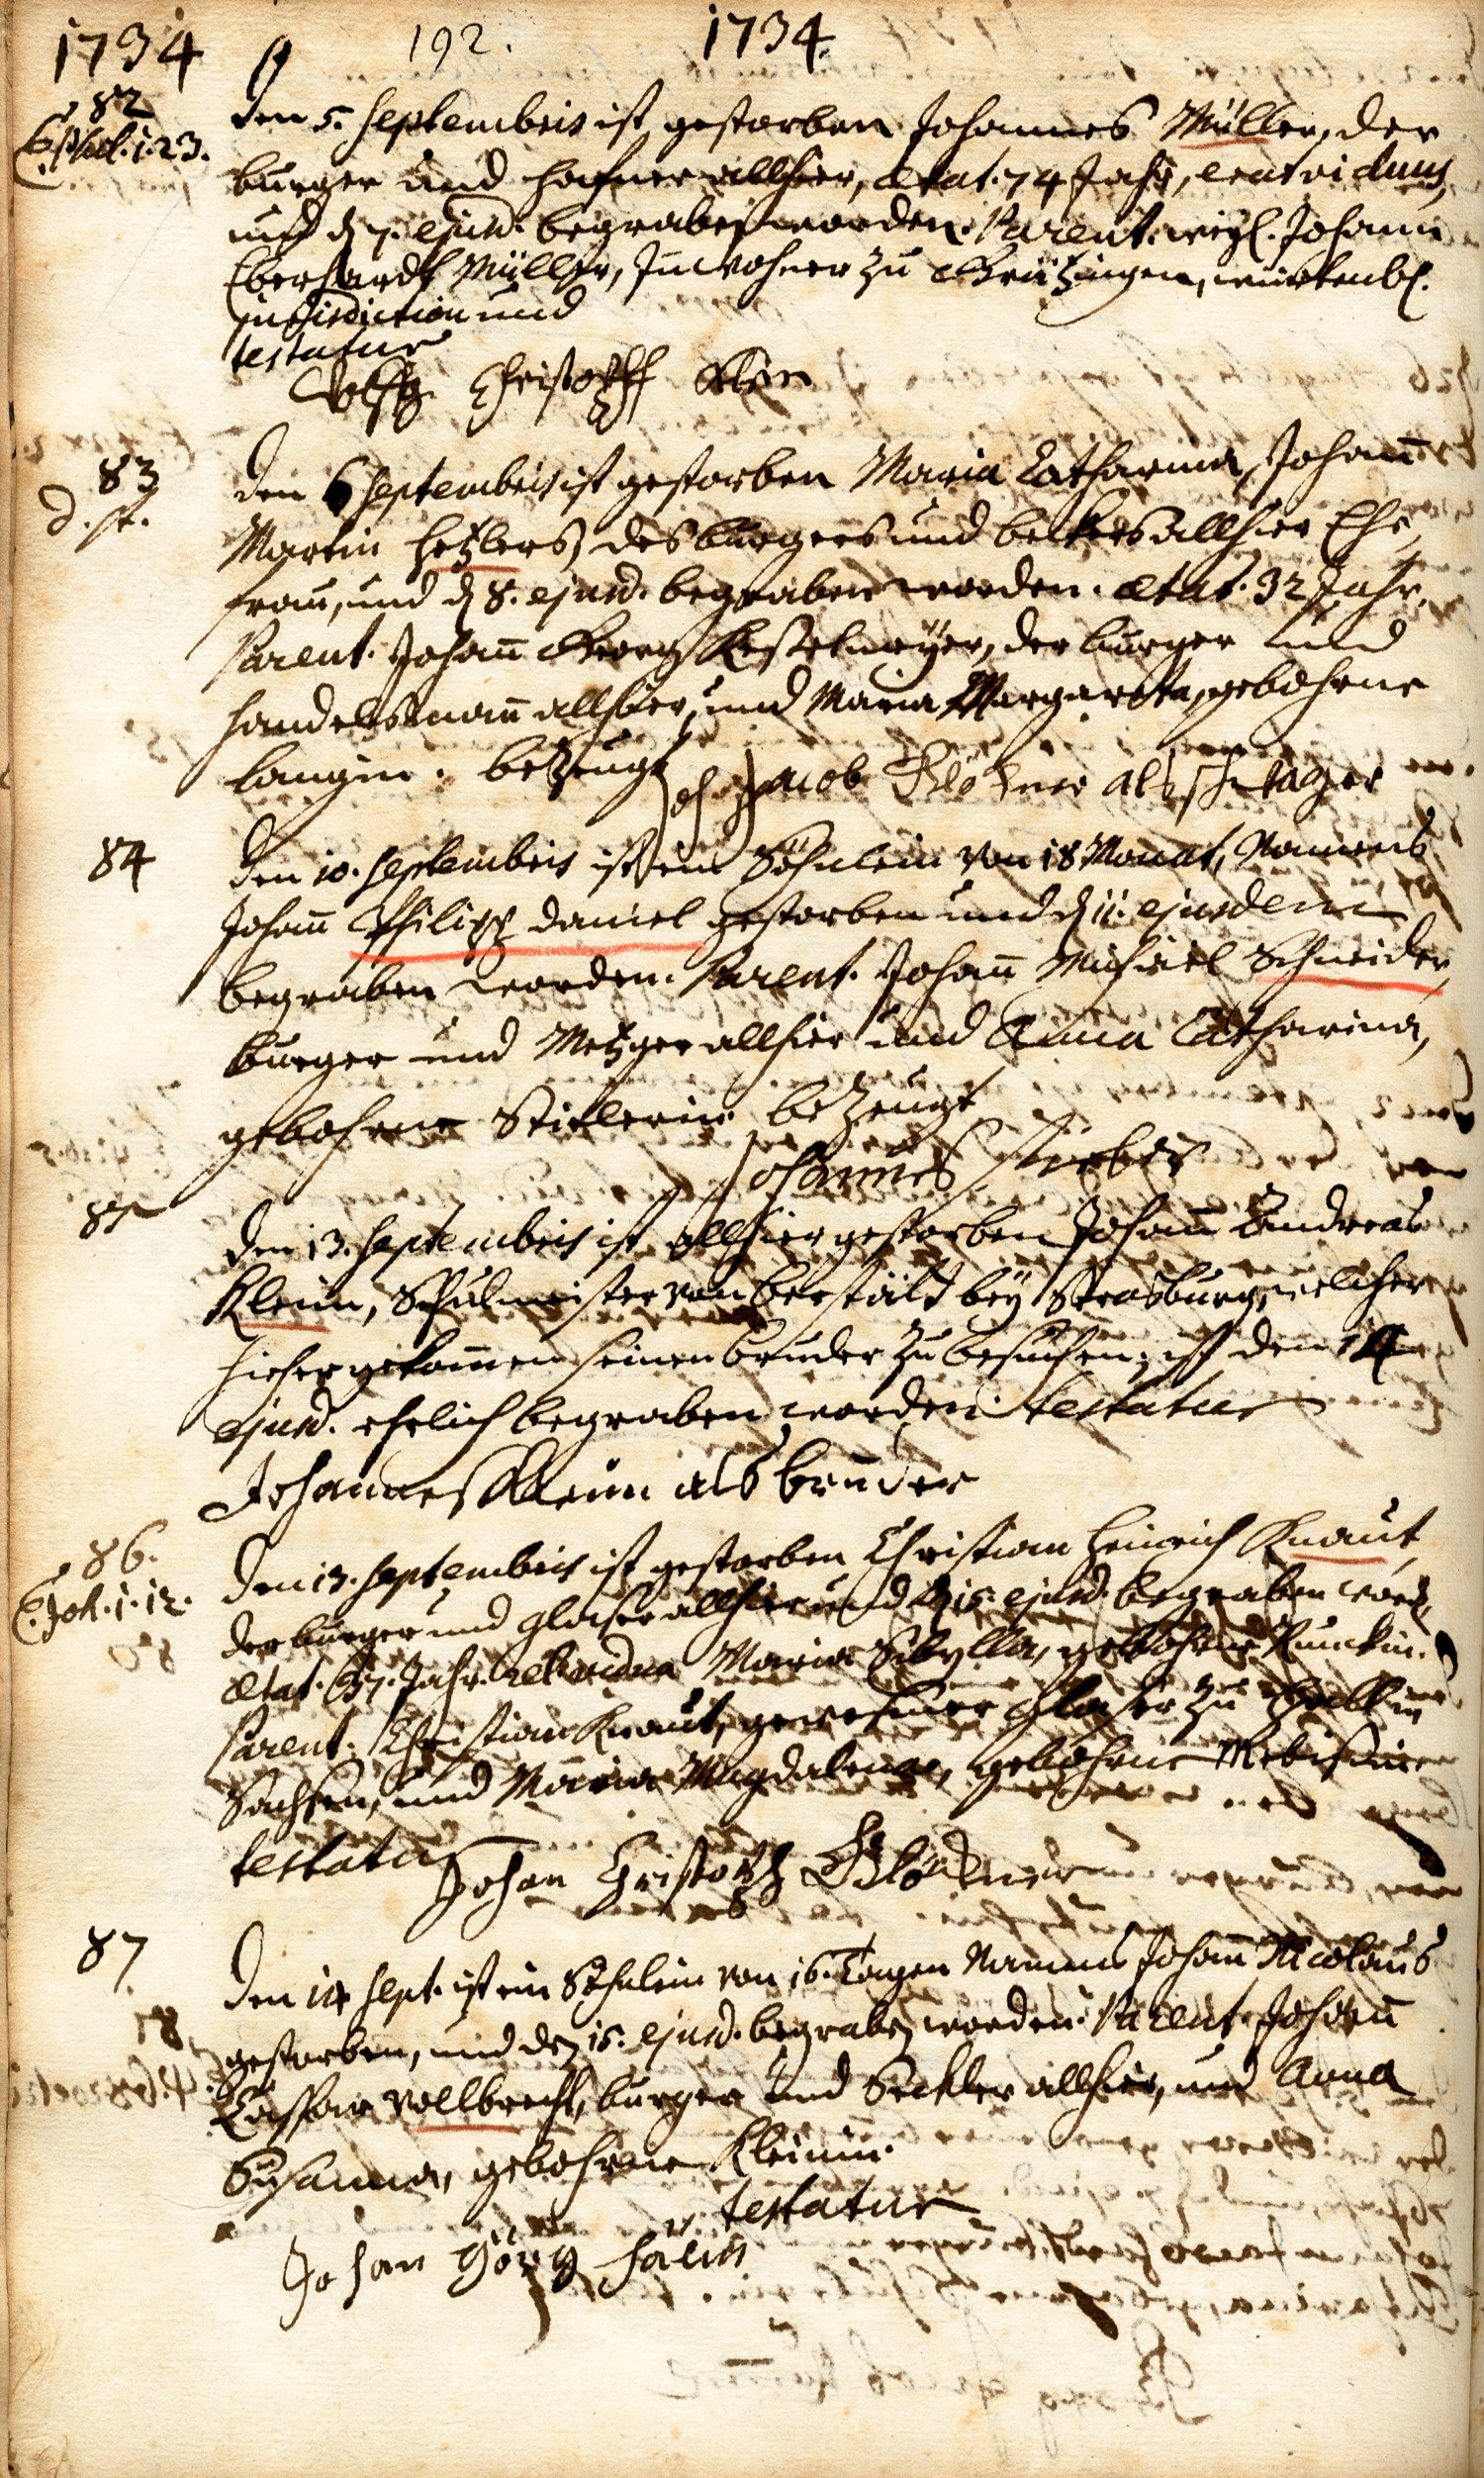 1734 192. 1734.
82
E. Phil. 1. 23.
den 5. Septembris ist gestorben Johannes Müller, der
burger und hafner allhier, aetat. 74 Jahr, erat viduus,
und d. 7. ejusd. begraben worden. Parent. weyl. Johann
Eberhardt Müller, Inwohner zu Grätzingen, würtenb.
jurisdiction und
testatur
Christopff
83
d. 
den 6 Septembris ist gestorben Maria Catharina, Johann
Martin Hetzlers des burgers und beckers allhier Ehe
frau, und d. 8. ejusd. begraben worden. aetat. 32 Jahr.
Parent. Johann Georg Kestelmeyer, der burger und
handelsmann allhier, und Maria Margareta, gebohrne
Langin. bezeugt
Joh Jacob Blöchner als schwager
84
den 10. Septembris ist ein Söhnlein von 18 Monat, Namens
Johann Philipp Daniel gestorben und d. 11. ejusdem
begraben worden. Parent. Johann Michael Schneider,
burger und Metzger allhier und Anna Catharina,
gebohrne Stieberin. bezeugt
Johannes Stieber
85
den 13. Septembris ist allhier gestorben Johann Andreas
Klein, Schulmeister von Berstätt bey Strasburg, welcher
hieher gekommen seinen bruder zu besuchen, ist den 14
ejusd. ehrlich begraben worden. testatur
Johannes Klein als bruder
86.
E. Joh. 1. 12.
den 13. Septembris ist gestorben Christian Heinrich Knaut
der burger und glaser allhier und d. 15. ejusd. begraben word.
aetat. 37. Jahr. rel. vidua Maria Sibylla, gebohrne Runckin.
Parent. Christian Knaut, gewesener Glaser zu Hall in
Sachsen, und Maria Magdalena, gebohrne Mebisin
testatur
Johan Christoph Blöchner
87
den 14 Sept. ist ein Söhnlein von 16. Tagen Namens Johann Nicolaus
gestorben, und den 15. ejusd. begraben worden. Parent. Johann
Caspar Vollbrecht, burger und Seckler allhier, und Anna
Susanna, gebohrne Kleinin.
testatur
Johan Görg